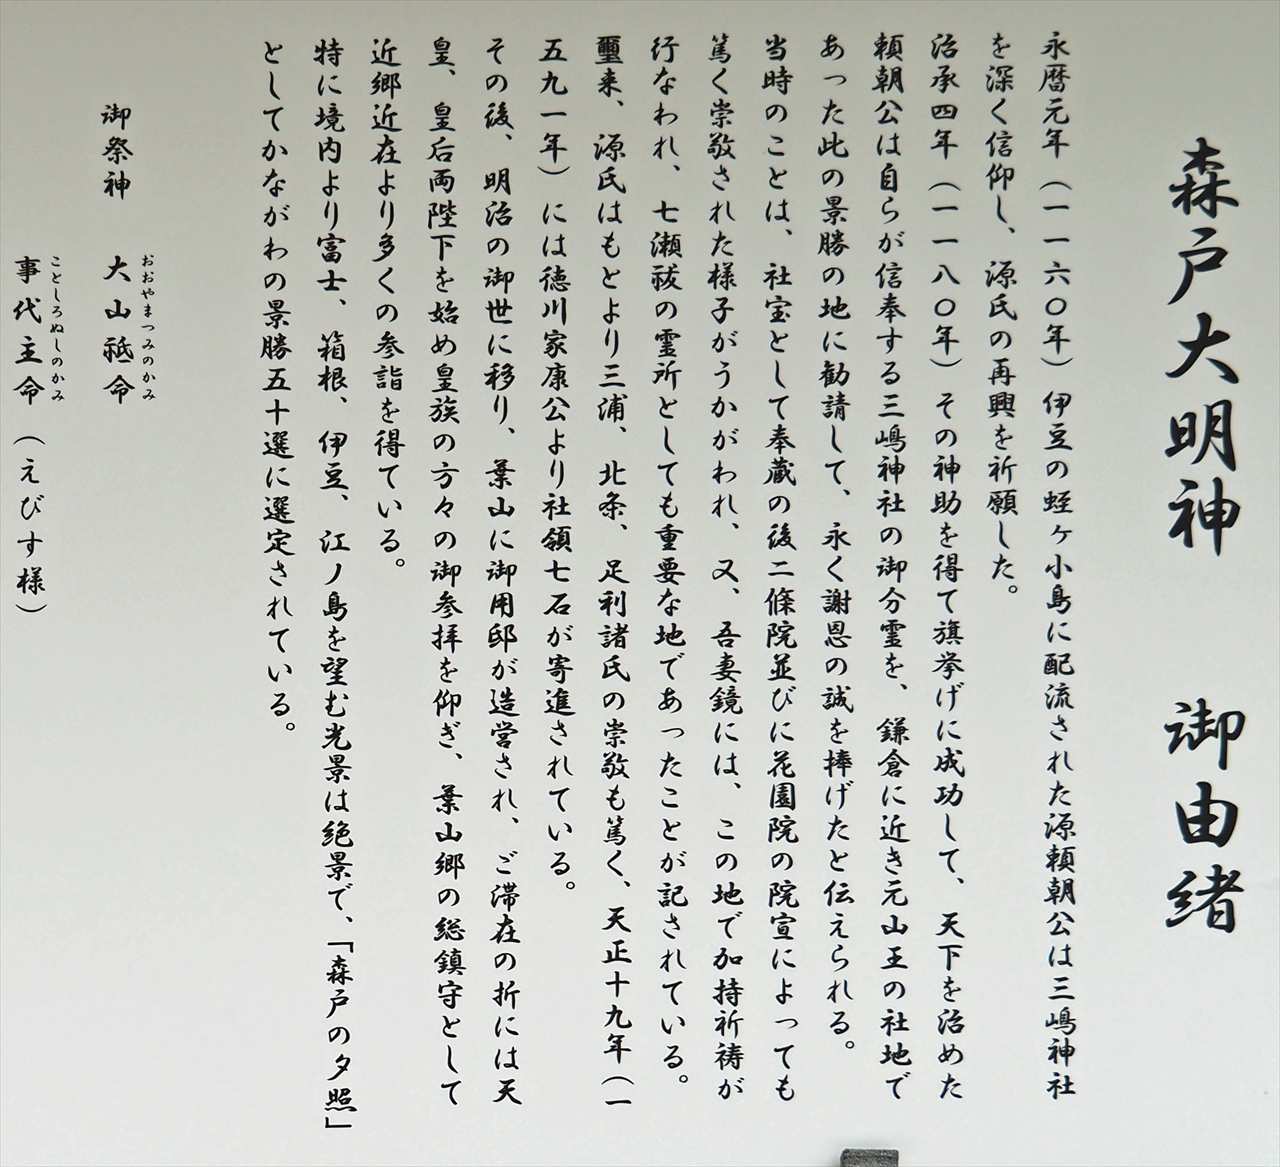 森戸大明神 御由緒
永暦元年(一一六〇年)伊豆の蛭ヶ小島に配流された源頼朝公は三嶋神社
を深く信仰し、源氏の再興を祈願した。
治承四年(一一八〇年)その神助を得て旗挙げに成功して、天下を治めた
頼朝公は自らが信奉する三嶋神社の御分霊を、鎌倉に近き元山王の社地で
あった此の景勝の地に勧請して、永く謝恩の誠を捧げたと伝えられる。
当時のことは、社宝として奉蔵の後二條院並びに花園院の院宣によっても
篤く崇敬された様子がうかがわれ、又、吾妻鏡には、この地で加持祈祷が
行なわれ、七瀬祓の霊所としても重要な地であったことが記されている。
璽来、源氏はもとより三浦、北条、足利諸氏の崇敬も篤く、天正十九年(一
五九一年)には徳川家康公より社領七石が寄進されている。
その後、明治の御世に移り、葉山に御用邸が造営され、ご滞在の折には天
皇、皇后両陛下を始め皇族の方々の御参拝を仰ぎ、葉山郷の総鎮守として
近郷近在より多くの参詣を得ている。
特に境内より富士、箱根、伊豆、江ノ島を望む光景は絶景で、「森戸の夕照」
としてかながわの景勝五十選に選定されている。
御祭神 大山祇命
おおやまつみのかみ
事代主命(えびす様)
ことしろぬしのかみ